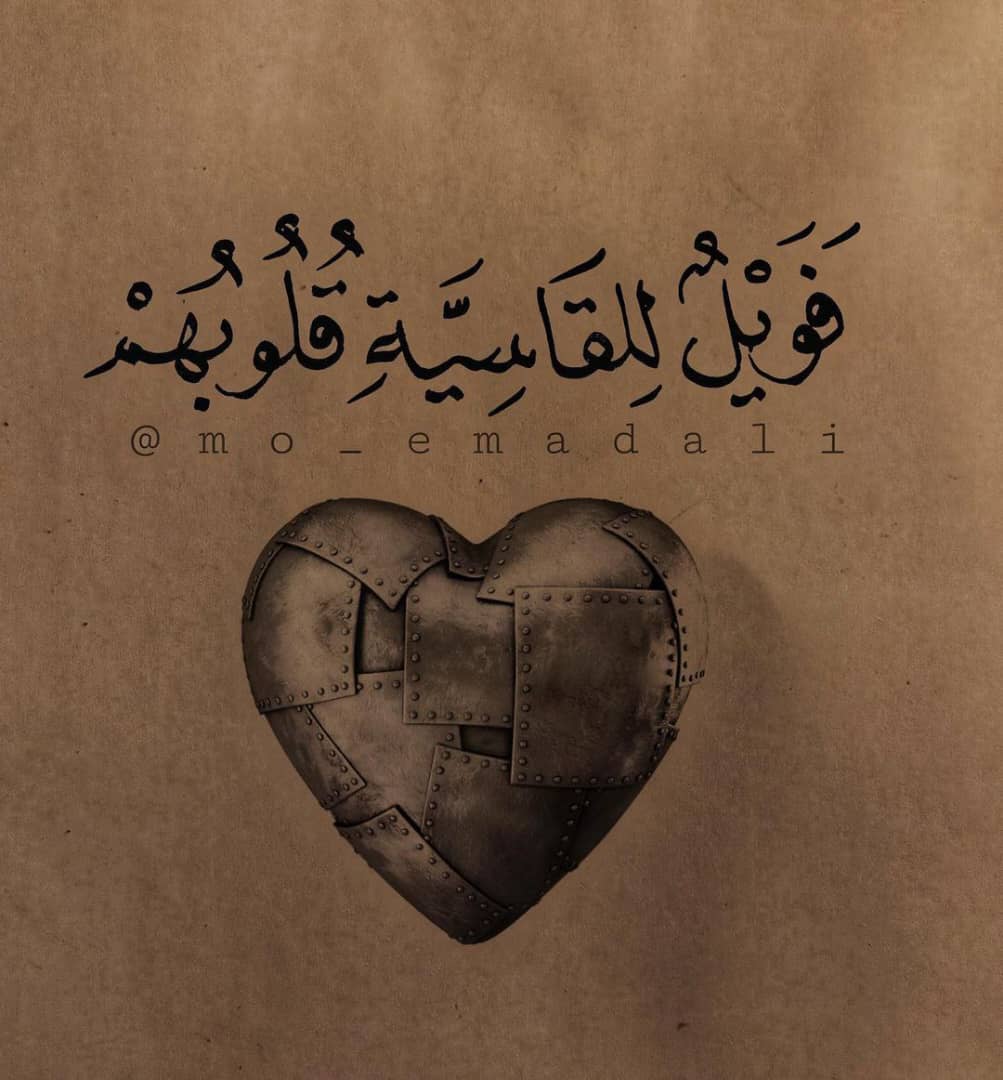 فَوَيْلٌ لِلقَاسِيَّةِ قُلُوبُهُمْ
@mo_emadali